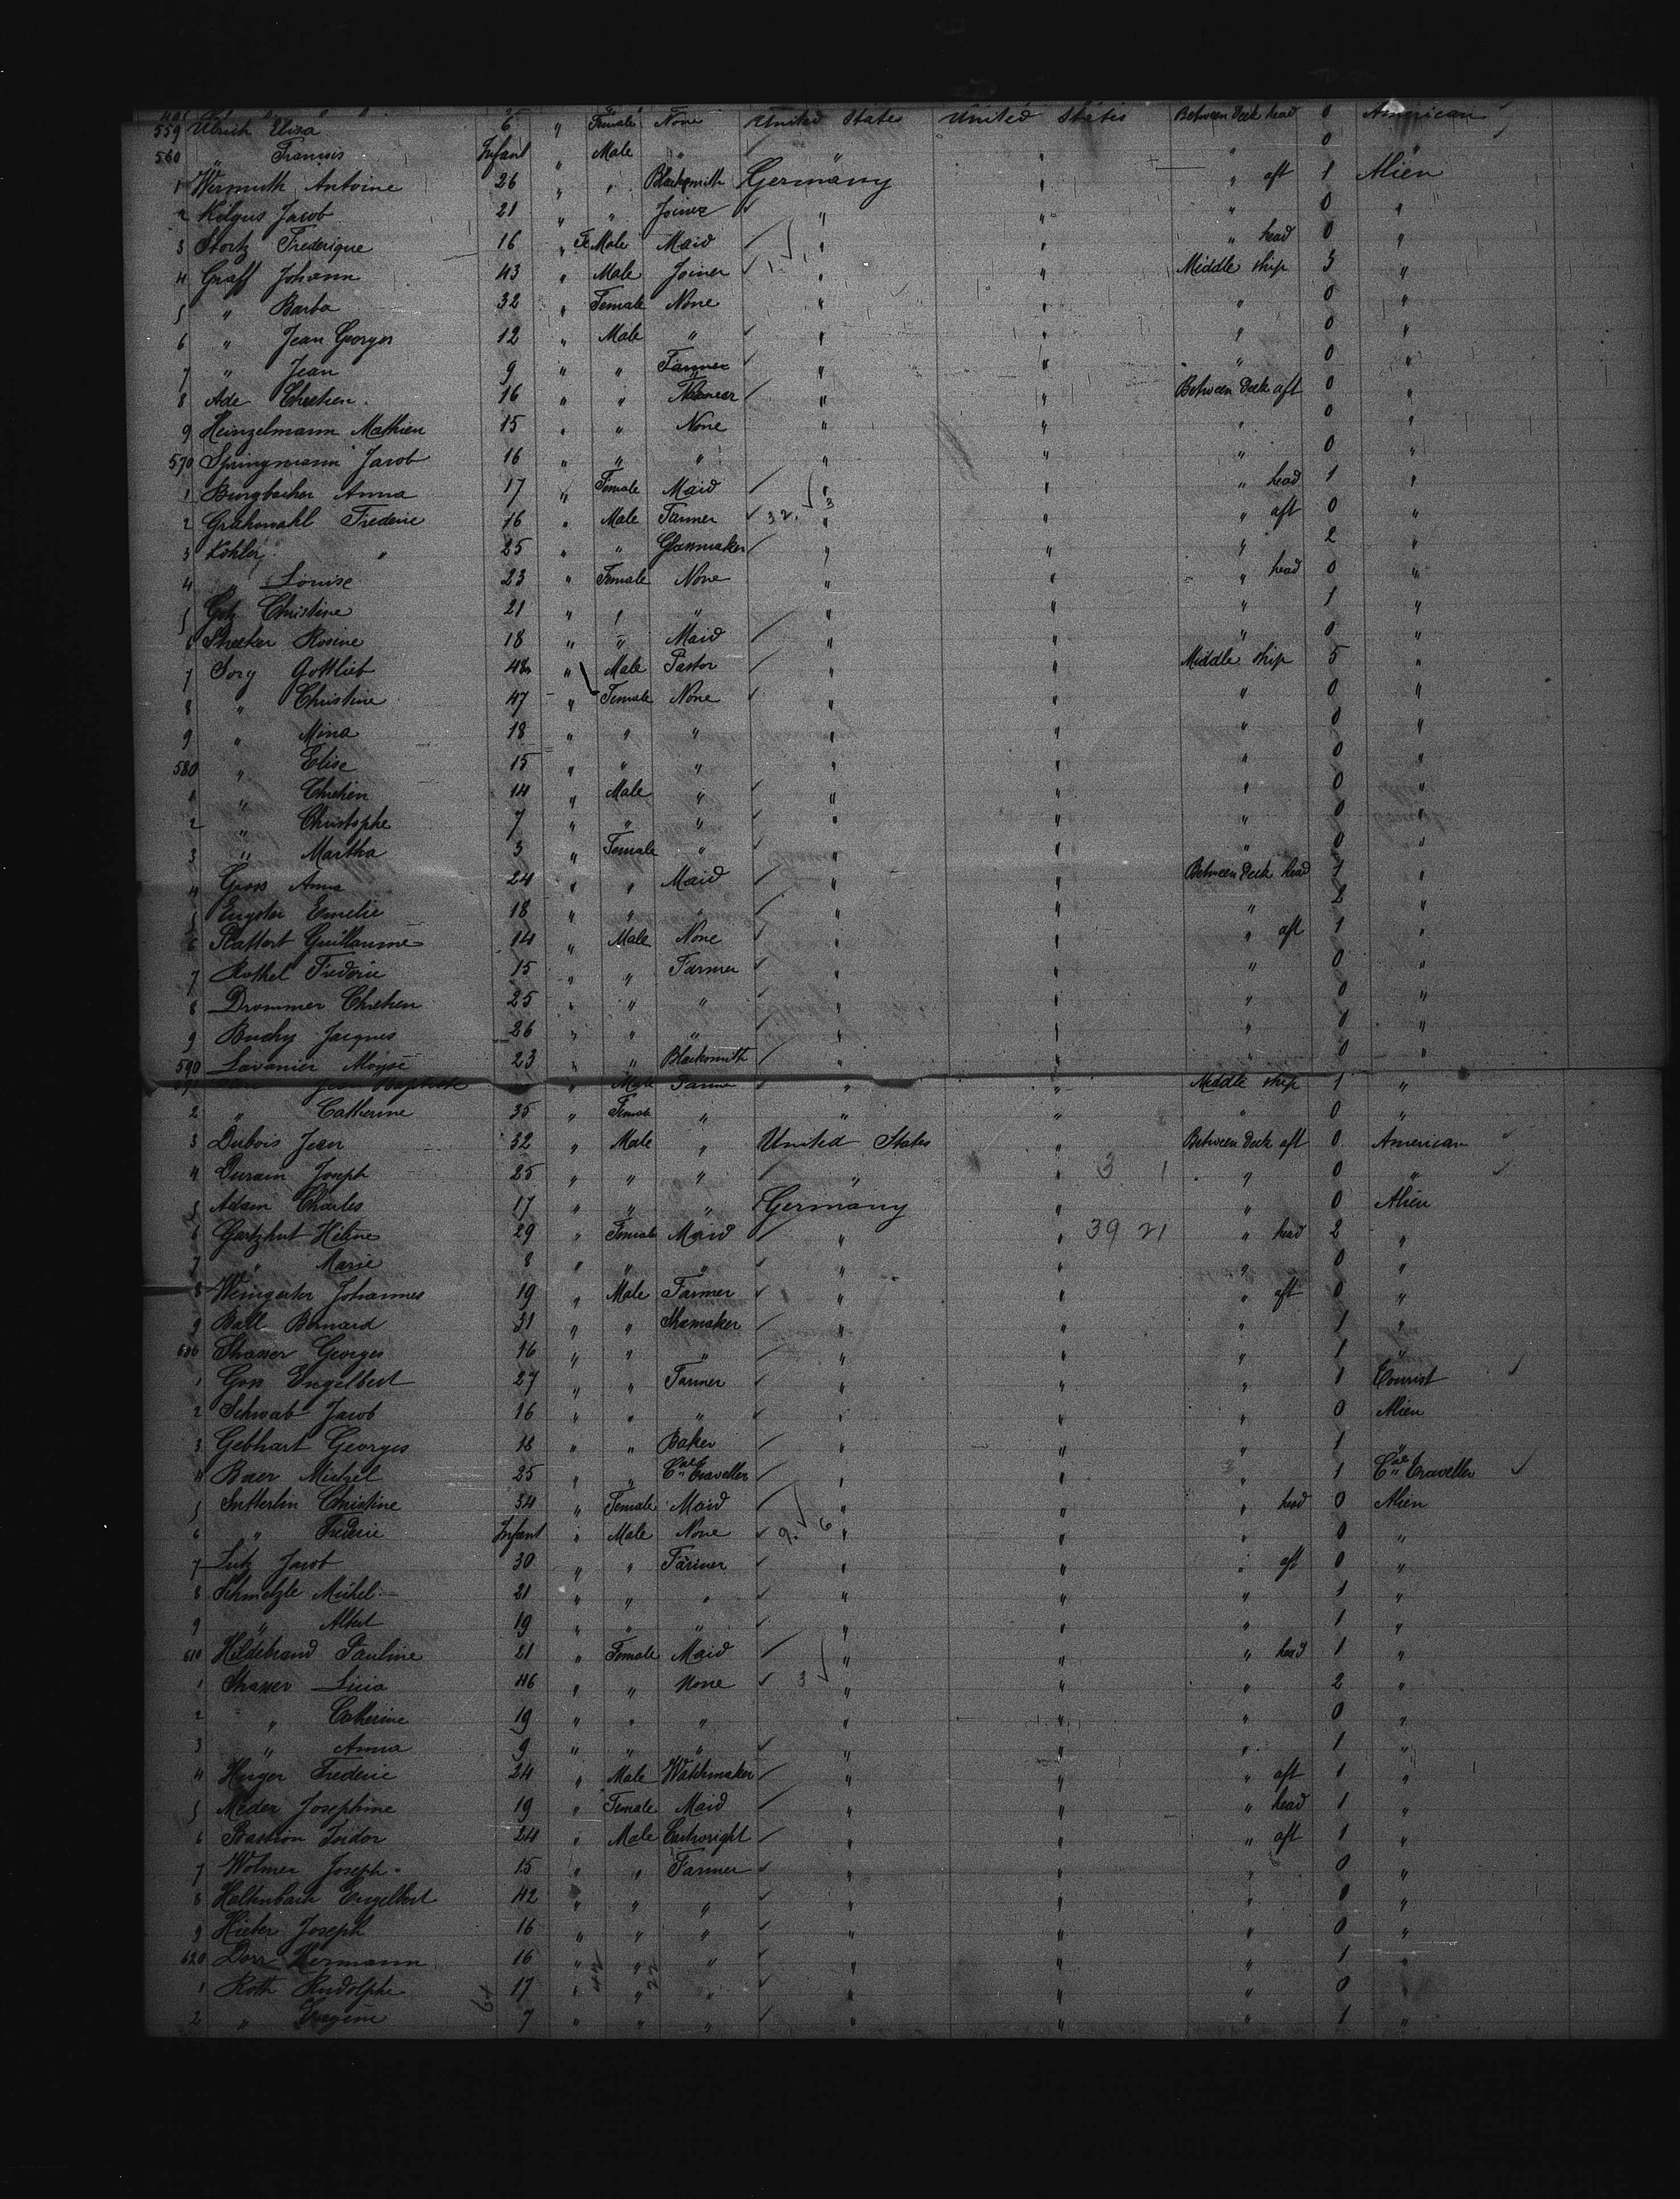 559 Ulrich Eliza 6 " Female None United States United States Between Deck head 0 American
560 " François Infant " Male " " " " 0 "
1 Wermuth Antoine 26 " " Blacksmith Germany " " aft 1 Alien
2 Kilgus Jacob 21 " " Joiner " " " 0 "
3 Stortz Frederique 16 " FeMale Maid " " " head 0 "
4 Graff Johann 43 " Male Joiner " " Middle ship 3 "
5 " Barba 32 " Female None " " " 0 "
6 " Jean Georges 12 " Male " " " " 0 "
7 " Jean 9 " " " " " 0 "
8 Ade Chretien 16 " " " " Between Deck aft 0 "
9 Heinzelmann Mathieu 15 " " None " " " 0 "
570 Springmann Jacob 16 " " " " " " 0 "
1 Burgbacher Anna 17 " Female Maid " " " head 1 "
2 Frederic 16 " Male Farmer 32. 3 " " " aft 0 "
3 Kohler " 25 " " " " " 2 "
4 " Louise 23 " Female None " " " head 0 "
5 Christine 21 " " " " " " 1 "
6 Rosine 18 " " Maid " " " 0 "
7 Sorg Gottlieb 48 " Male Pastor " " Middle ship 5 "
8 " Christine 47 " Female None " " " 0 "
9 " Mina 18 " " " " " " 0 "
580 " Elise 15 " " " " " " 0 "
1 " Chretien 14 " Male " " " " 0 "
2 " Christophe 7 " " " " " " 0 "
3 " Martha 3 " Female " " " " 0 "
4 Gross Anna 24 " " Maid " " Between Deck head 1 "
5 Emelie 18 " " " " " " 2 "
6 Guillaume 14 " Male None " " " aft 1 "
7 Rothel Frederic 15 " " Farmer " " " 0 "
8 Drommer Chretien 25 " " " " " " 0 "
9 Buchy Jacques 26 " " " " " " 1 "
590 Lavanier Moyse 23 " " Blacksmith " " " 0 "
Jean Baptiste " Male Farmer " " Middle ship 1 "
2 " Catherine 35 " Female " " " " 0 "
3 Dubois Jean 32 " Male " United States " Between Deck aft 0 American
4 Durain Joseph 25 " " " " " 3 1 " 0 "
5 Adam Charles 17 " " " Germany " " 0 Alien
6 Hélène 29 " Female Maid " " 39 21 " head 2 "
7 " Marie 8 " " " " " " 0 "
8 Johannes 19 " Male Farmer " " " aft 0 "
9 Ball Bernard 31 " " Shomaker " " " 1 "
600 Strasser Georges 16 " " " " " " 1 "
1 Goss Engelbert 27 " " Farmer " " " 1 Tourist
2 Schwab Jacob 16 " " " " " " 0 Alien
3 Gebhart Georges 18 " " Baker " " " 1 "
4 Baer Michel 25 " " Cial Traveller " " " 1 Cial Traveller
5 Sutterlin Christine 34 " Female Maid " " " head 0 Alien
6 " Frederic Infant " Male None 9. 6 " " " 0 "
7 Lutz Jacob 30 " " Farmer " " " aft 0 "
8 Schmelzle Michel 21 " " " " " " 1 "
9 " Albert 19 " " " " " " 1 "
610 Hildebrand Pauline 21 " Female Maid " " " head 1 "
1 Strasser Lucia 46 " " None 3 " " " 2 "
2 " Catherine 19 " " " " " " 0 "
3 " Anna 9 " " " " " " 1 "
4 Frederic 24 " Male Watchmaker " " " aft 1 "
5 Meder Josephine 19 " Female Maid " " " head 1 "
6 Bastion Isidor 24 " Male Cartwright " " " aft 1 "
7 Wolmer Joseph 15 " " Farmer " " " 0 "
8 Haltenbach Engelbert 42 " " " " " " 0 "
9 Hieber Joseph 16 " " " " " " 0 "
620 Dorr Hermann 16 " " " " " " 1 "
1 Roth Rudolphe 17 " " " " " " 0 "
2 " Eugène 7 " " " " " " 1 "
64 42 22